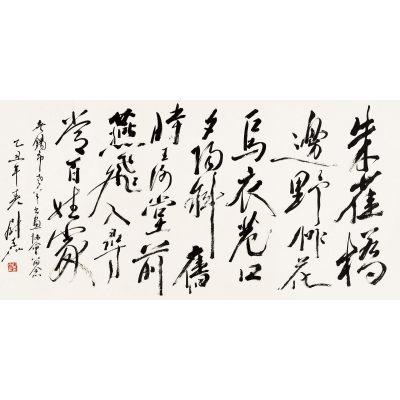 朱雀橋
邊野草花
烏衣巷口
夕陽斜舊
時王謝堂前
燕飛入尋
常百姓家
无錫市留念
乙丑年